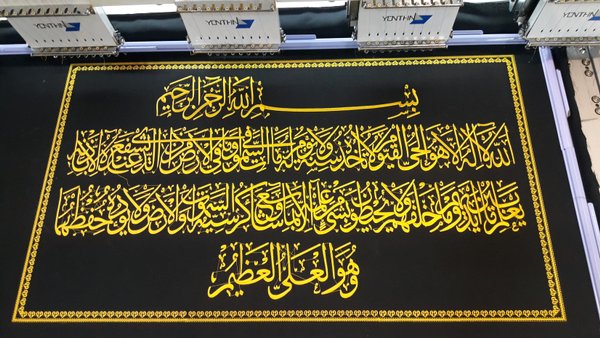 YONTHIN
YONTHIN
YONTHIN
بسم الله الرحمن الرحيم
الله لا إله إلا هو الحي القيوم لا تأخذه سنة ولا نوم له ما في السموات وما في الأرض من ذا الذي يشفع عنده إلا بإذنه
يعلم ما بين أيديهم وما خلفهم ولا يحيطون بشيء من علمه إلا بما شاء وسع كرسيه السموات والأرض ولا يؤده حفظهما
وهو العلي العظيم